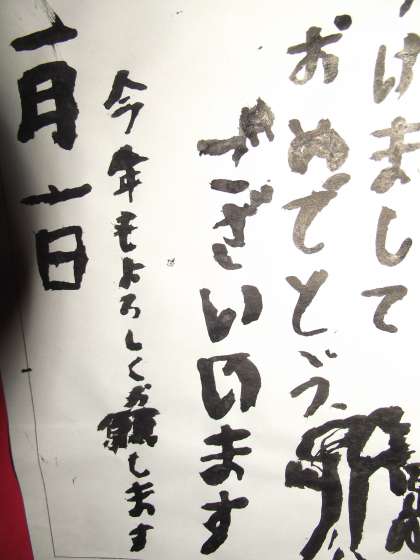 けまして
おめでとう
ございのます
今年もよろしくお願します
一月一日